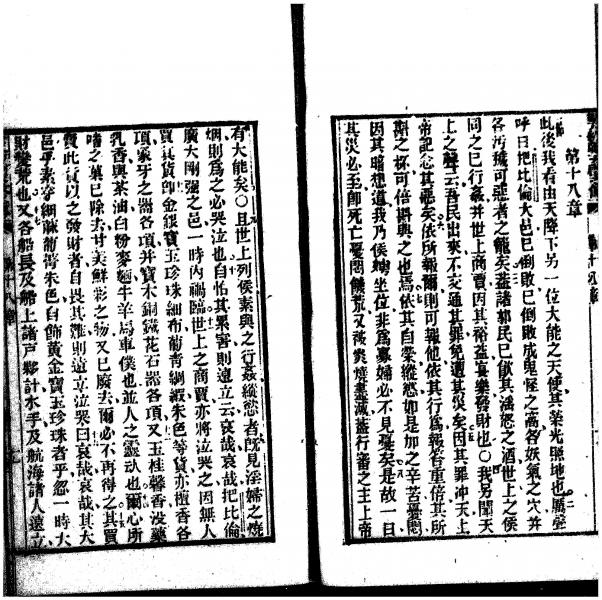 第十八章
此後我看由天降下另一位大能之天使其榮光照地也厲聲
呼曰把比倫大邑已倒敗已倒敗成鬼怪之窩各妖氣之穴并
各污穢可惡者之籠矣蓋諸郭民已飲其淫慾之酒世上之侯
同之已行姦并世上商賈因其裕益喜樂發財也〇我另聞天
上之聲云吾民出來不交通其罪免遭其災矣因其罪冲天上
帝記念其惡矣依所報爾則可報他依其行為報答重倍其所
斟之杯可倍斟與之也為依其自榮縱慾如是加之辛苦憂悶
因其暗想道我乃侯婦坐位非為寡婦必不見憂矣是故一日
其災必至即死亡憂悶饑荒又被燹燒盡滅蓋行審之主上帝
有大能矣〇且世上列侯素與之行姦縱慾者既見淫婦之燒
烟則為之必哭泣也自怕其累害則遠立云哀哉哀哉把比倫
廣大剛強之邑一時內禍臨世上之商賈亦將泣哭之因無人
買其貨即金銀寶玉珍珠細布葡青綢緞朱色等貨亦檀香各
項象牙之器各項并寶木銅鐵花石器各項又玉桂馨香沒藥
乳香與茶油白粉麥麵牛羊馬車僕也並人之靈魂也爾心所
嗜之菓已除去甘美鮮彩之物又已廢去爾必不再得之其買
賣此貨以之發財者自畏其難則遠立泣哭曰哀哉哀哉其大
邑乎素穿細麻葡青朱色白飾黃金寶玉珍珠者乎忽一時大
財變荒也又各船長及船上諸戶夥計水手及航海諸人遠立